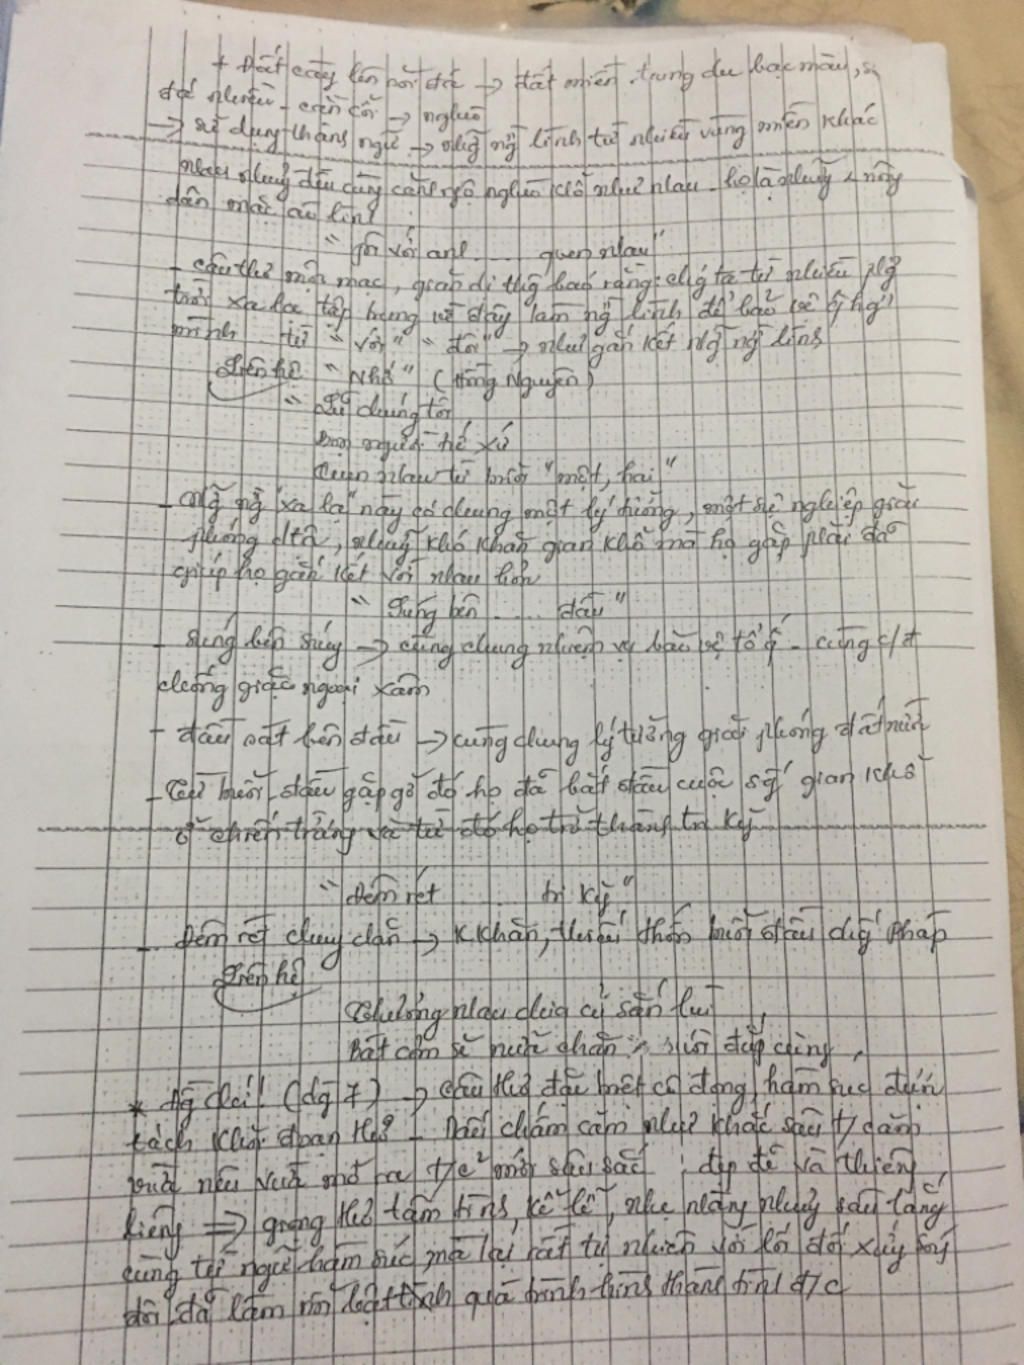 + Đất cày lên sỏi đá → đất miền trung du bạc màu, sỏi
đá nhiều - cằn cỗi → nghèo
→ sử dụng thành ngữ → những ng lính từ nhiều vùng miền khác
nhau nhưng đều cùng cảnh ngộ nghèo khổ như nhau - họ là những nông
dân mặc áo lính
" Tôi với anh ..... quen nhau"
- câu thơ mộc mạc, giản dị thông báo rằng: chúng ta từ nhiều phg
trời xa lạ tập trung về đây làm ng lính để bảo vệ q hg
mình từ " với" " đôi" → như gắn kết những ng lính
Liên hệ " Nhớ" (Hồng Nguyên)
" Lũ chúng tôi
Bọn người tứ xứ
Quen nhau từ buổi "một, hai"
- Những ng "xa lạ" này có chung một lý tưởng, một sự nghiệp giải
phóng dtộc, những khó khăn gian khổ mà họ gặp phải đã
giúp họ gắn kết với nhau hơn
" Súng bên ..... đầu"
- súng bên súng → cùng chung nhiệm vụ bảo vệ tổ q - cùng c/đ
chống giặc ngoại xâm
+ đầu sát bên đầu → cùng chung lý tưởng giải phóng đất nước
- Từ buổi đầu gặp gỡ đó họ đã bắt đầu cuộc sg gian khổ
ở chiến trường và từ đó họ trở thành tri kỷ
" Đêm rét ..... tri kỷ"
- Đêm rét chung chăn → k khăn, thiếu thốn buổi đầu chống Pháp
Liên hệ
Thương nhau chia củ sắn lùi
Bát cơm sẻ nửa chăn sui đắp cùng
* Đg chí! (dg 7) → câu thơ đặc biệt cô đọng, hàm súc được
tách khỏi đoạn thơ - Dấu chấm cảm như khắc sâu t/cảm
vừa nêu vừa mở ra t/c mới sâu sắc, đẹp đẽ và thiêng
liêng ⇒ giọng thơ tâm tình, kể lể, nhẹ nhàng nhưng sâu lắng
cùng từ ngữ hàm súc mà lại rất tự nhiên với lối đối xứng sóng
đôi đã làm nổi bật quá trình hình thành tình đ/c